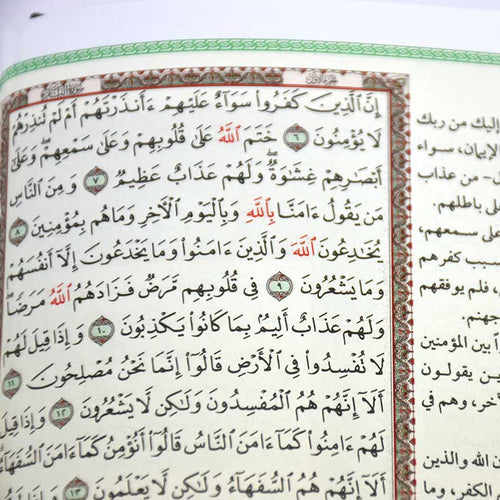 إِنَّ ٱلَّذِينَ كَفَرُوا۟ سَوَآءٌ عَلَيْهِمْ ءَأَنذَرْتَهُمْ أَمْ لَمْ تُنذِرْهُمْ
لَا يُؤْمِنُونَ ٦ خَتَمَ ٱللَّهُ عَلَىٰ قُلُوبِهِمْ وَعَلَىٰ سَمْعِهِمْ ۖ وَعَلَىٰٓ
أَبْصَٰرِهِمْ غِشَٰوَةٌ ۖ وَلَهُمْ عَذَابٌ عَظِيمٌ ٧ وَمِنَ ٱلنَّاسِ
مَن يَقُولُ ءَامَنَّا بِٱللَّهِ وَبِٱلْيَوْمِ ٱلْءَاخِرِ وَمَا هُم بِمُؤْمِنِينَ ٨
يُخَٰدِعُونَ ٱللَّهَ وَٱلَّذِينَ ءَامَنُوا۟ وَمَا يَخْدَعُونَ إِلَّآ أَنفُسَهُمْ
وَمَا يَشْعُرُونَ ٩ فِى قُلُوبِهِم مَّرَضٌ فَزَادَهُمُ ٱللَّهُ مَرَضًا ۖ
وَلَهُمْ عَذَابٌ أَلِيمٌۢ بِمَا كَانُوا۟ يَكْذِبُونَ ١٠ وَإِذَا قِيلَ لَهُمْ
لَا تُفْسِدُوا۟ فِى ٱلْأَرْضِ قَالُوٓا۟ إِنَّمَا نَحْنُ مُصْلِحُونَ ١١
أَلَآ إِنَّهُمْ هُمُ ٱلْمُفْسِدُونَ وَلَٰكِن لَّا يَشْعُرُونَ ١٢ وَإِذَا قِيلَ
لَهُمْ ءَامِنُوا۟ كَمَآ ءَامَنَ ٱلنَّاسُ قَالُوٓا۟ أَنُؤْمِنُ كَمَآ ءَامَنَ ٱلسُّفَهَآءُ
أَلَآ إِنَّهُمْ هُمُ ٱلسُّفَهَآءُ وَلَٰكِن لَّا يَعْلَمُونَ ١٣
اليك من ربك
الإيمان، سواء
- من عذاب
على باطلهم.
على سمعهم،
سبب كفرهم
، فلم يوفقهم
جهنم.
بين المؤمنين
من يقولون
وهم في
الله والذين
الكفر، وما